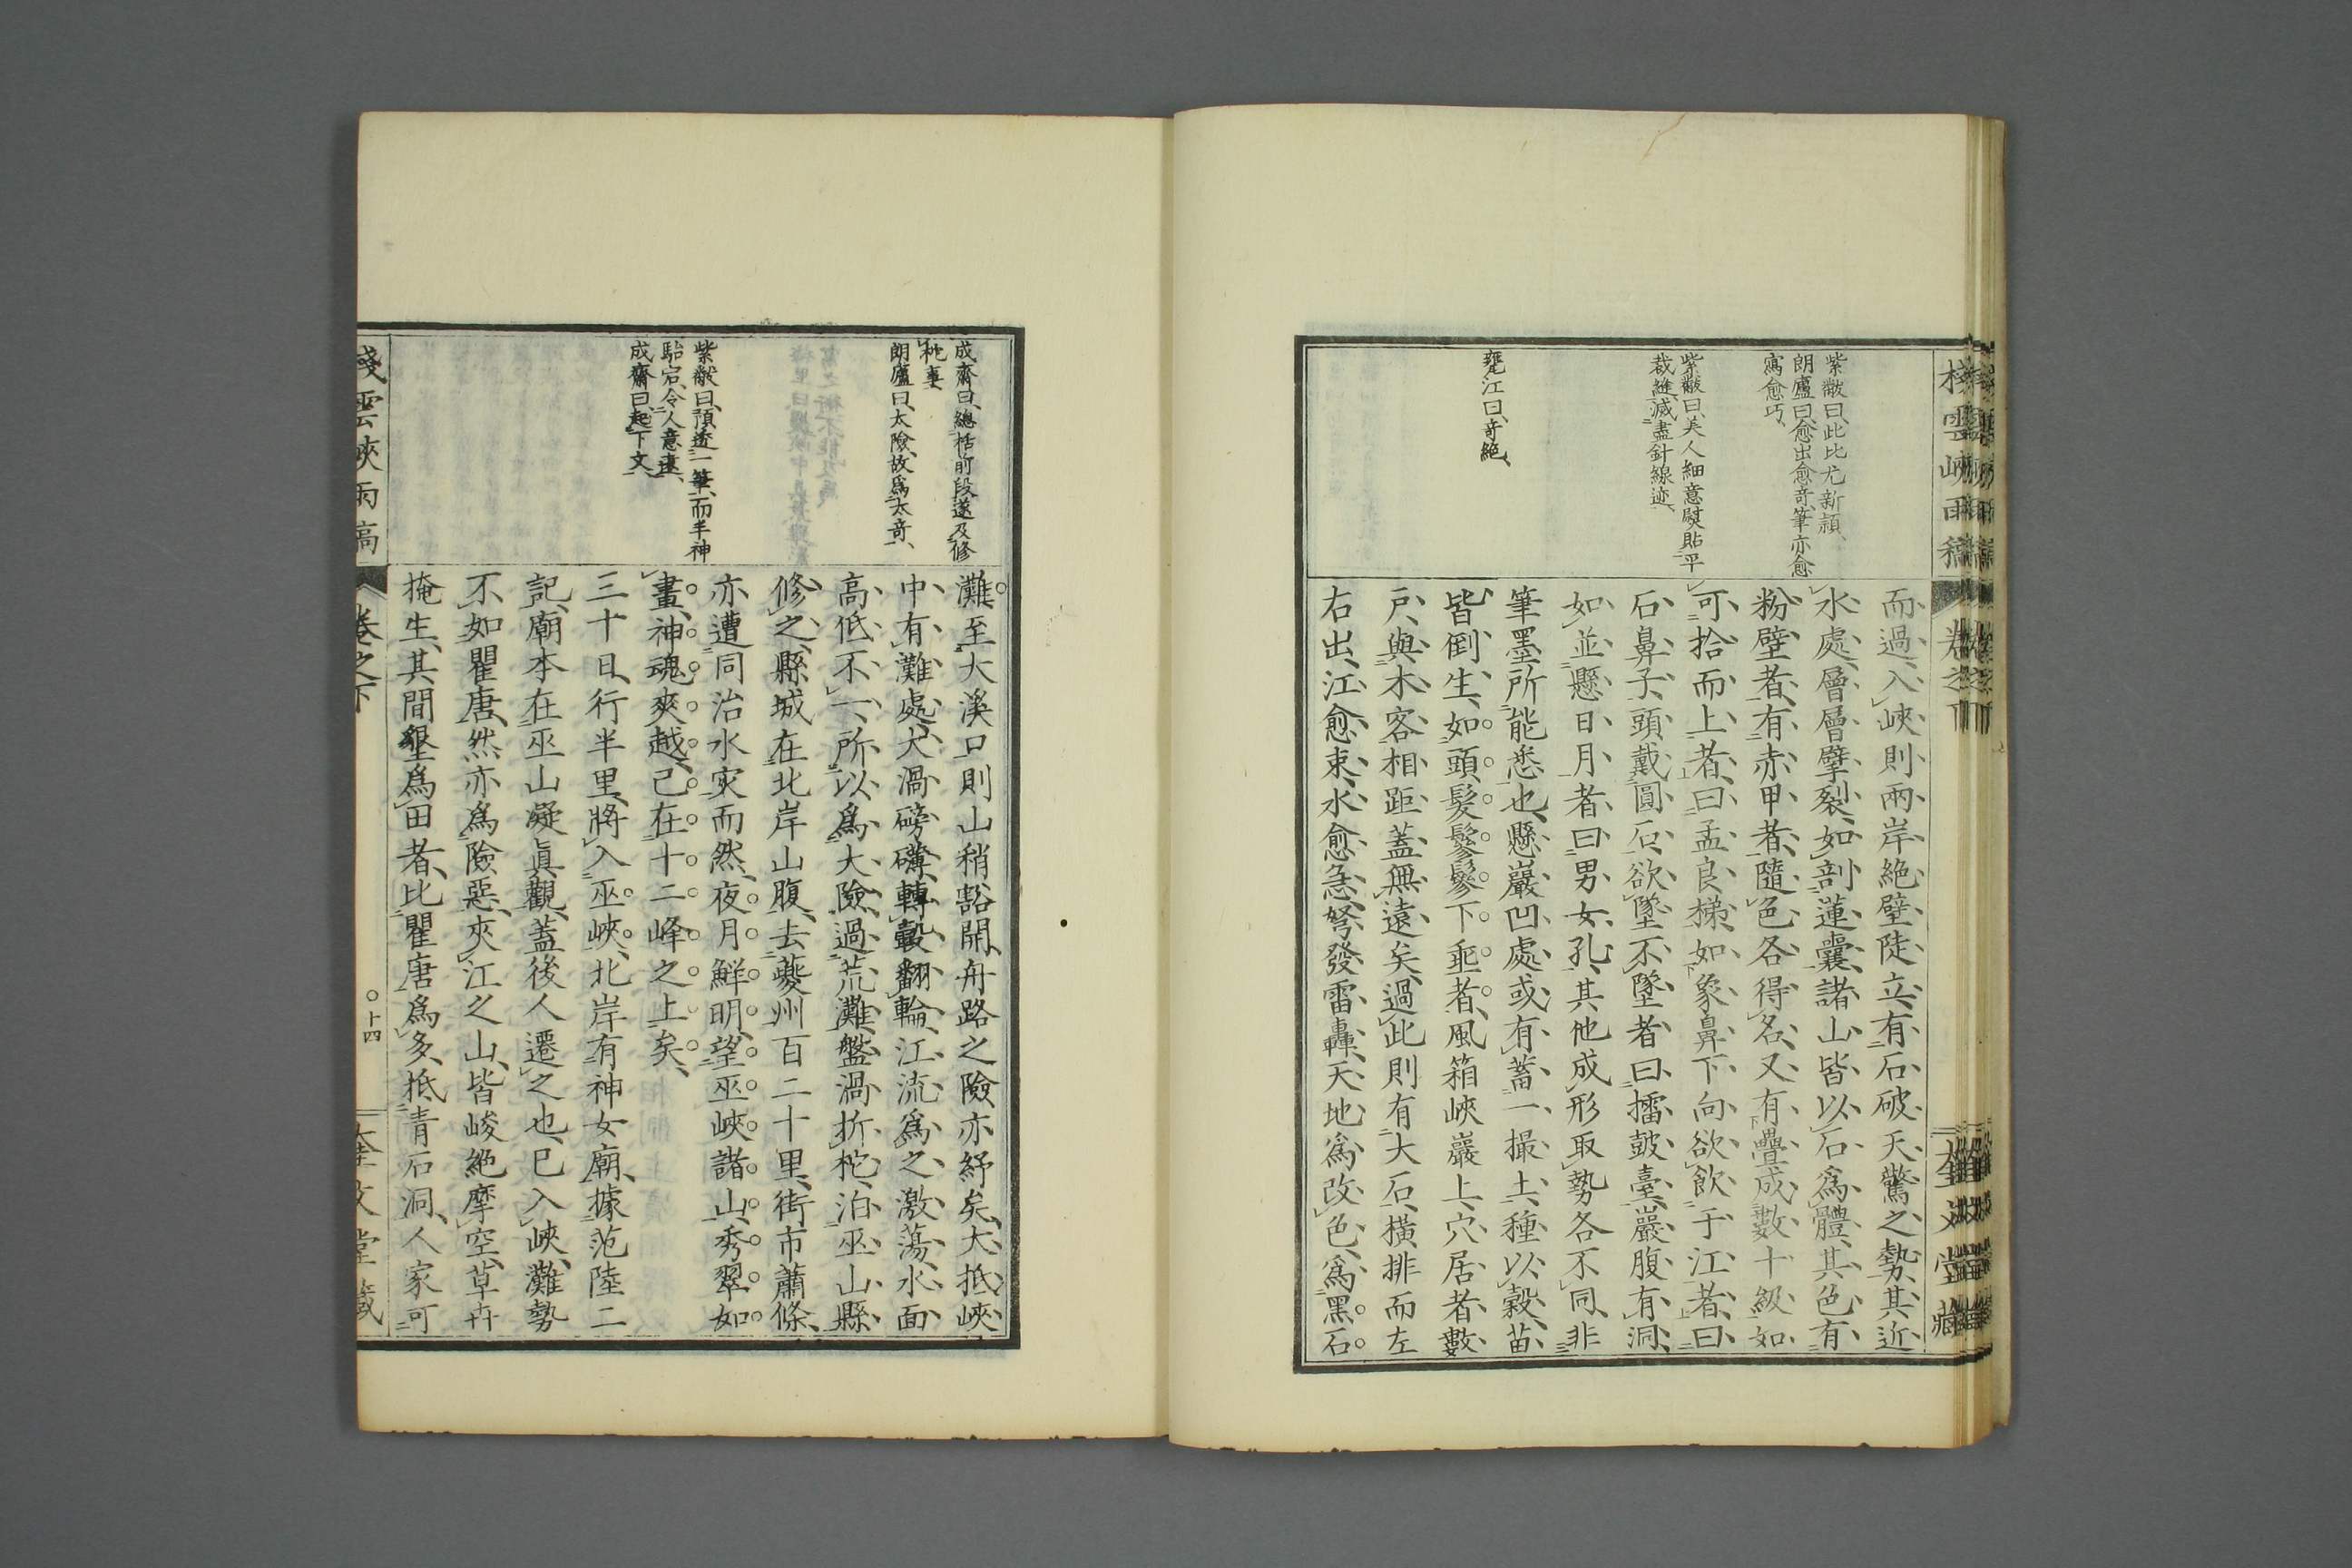 棧雲峽雨稿
卷之下
奎文堂藏
紫黻曰、此比尤新穎、
朗廬曰、愈出愈奇、筆亦愈
寫愈巧、
紫黻曰、美人細意熨貼平
裁縫滅盡針線迹、
甕江曰、奇絶、
而過、入峽則兩岸絶壁陡立、有石破天驚之勢、其近
水處、層層擘裂、如剖蓮囊、諸山皆以石爲體、其色有
粉壁者、有赤甲者、隨色各得名、又有疊成數十級如
可拾而上者、曰孟良梯、如象鼻下向欲飮于江者、曰
石鼻子、頭戴圓石、欲墜不墜者曰擂鼓臺、巖腹有洞、
如並懸日月者曰男女孔、其他成形取勢各不同、非
筆墨所能悉也、懸巖凹處或有蓄一撮土、種以穀苗、
皆倒生、如頭髮鬖鬖下垂者、風箱峽巖上、穴居者數
戸、與木客相距蓋無遠矣、過此則有大石、橫排而左
右出、江愈束、水愈急、弩發雷轟、天地爲改色、爲黑石
成齋曰、總括前段遂及修
祂事
朗廬曰、太險、故爲太奇、
紫黻曰、預透一筆、而半神
駘宕、令人意遠、
成齋曰、起下文、
灘、至大溪口則山稍豁開、舟路之險亦紓矣、大抵峽
中有灘處、大渦磅礴、轉轂翻輪、江流爲之激蕩、水面
高低不一、所以爲大險、過荒灘、盤渦折柁、泊巫山縣
修之、縣城在北岸山腹、去夔州百二十里、街市蕭條、
亦遭同治水灾而然、夜月鮮明、望巫峽諸山、秀翠如
畫、神魂爽越、已在十二峰之上矣、
三十日、行半里、將入巫峽、北岸有神女廟、據范陸二
記、廟本在巫山凝眞觀、蓋後人遷之也、已入峽、灘勢
不如瞿唐、然亦爲險惡、夾江之山、皆峻絶摩空、草卉
掩生、其間墾爲田者、比瞿唐爲多、抵青石洞、人家可
棧雲峽雨稿
卷之下
〇十四
奎文堂藏